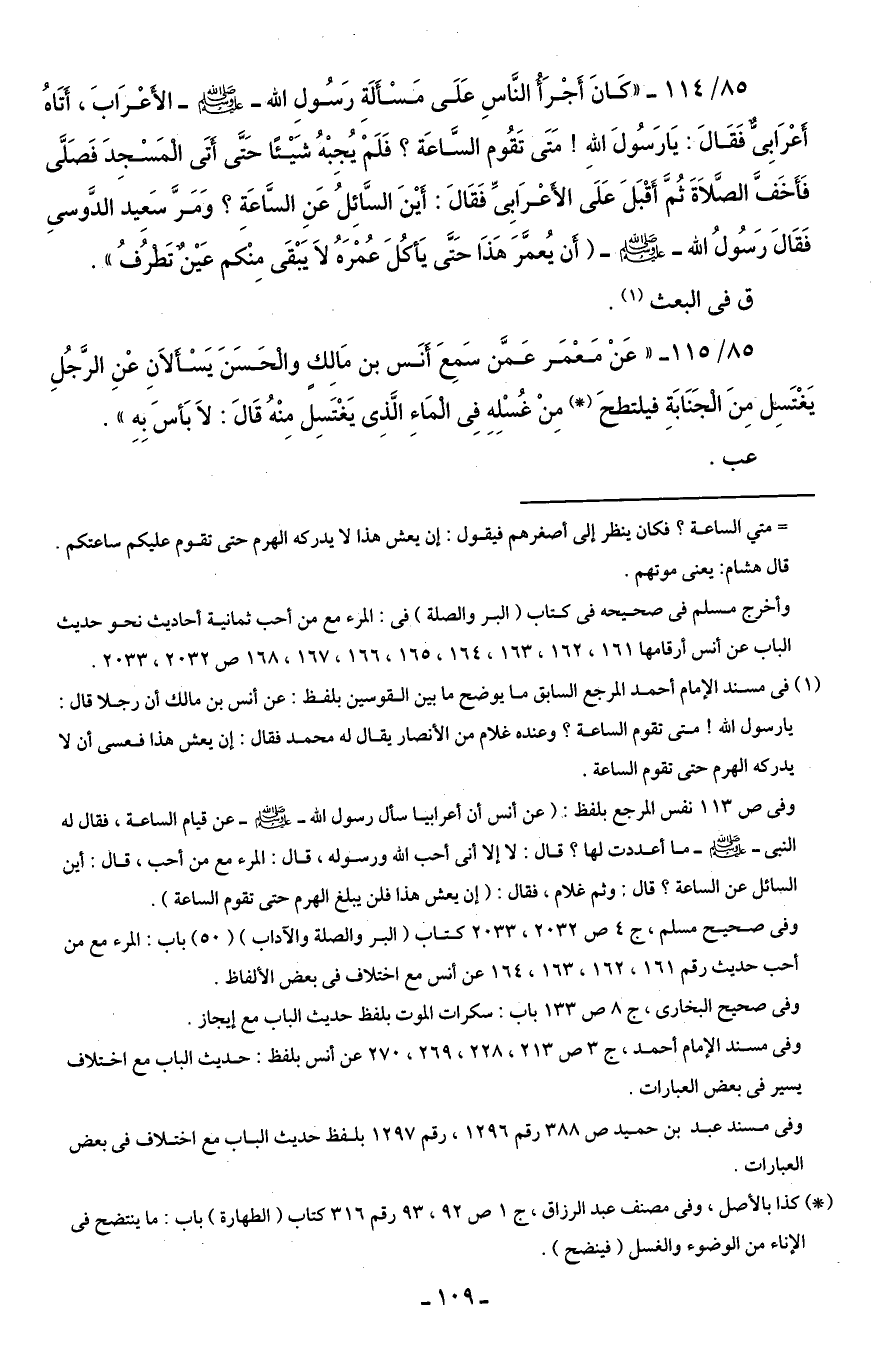 ٨٥/ ١١٤ ـ «كَانَ أَجْرَأُ النَّاسِ عَلَى مَسْأَلَةِ رَسُولِ الله ـ ﷺ ـ الأَعْرَابَ ، أَتَاهُ
أَعْرَابِىٌّ فَقَالَ : يَارَسُولَ الله ! مَتَى تَقُوم السَّاعَة ؟ فَلَمْ يُجِبْهُ شَيْئًا حَتَّى أَتَى الْمَسْجِدَ فَصَلَّى
فَأَخَفَّ الصَّلاَةَ ثُمَّ أَقْبَلَ عَلَى الأَعْرَابِىِّ فَقَالَ : أَيْنَ السَّائِلُ عَنِ السَّاعَةِ ؟ وَمَرَّ سَعِيد الدَّوسِي
فَقَالَ رَسُولُ الله ـ ﷺ ـ ( أَن يُعمَّرَ هَذَا حَتَّى يَأكُلَ عُمْرَهُ لاَ يَبْقَى مِنْكم عَيْنٌ تَطْرُفُ » .
ق فى البعث (١) .
٨٥/ ١١٥ـ « عَنْ مَعْمَر عَمَّن سَمِعَ أَنَس بن مَالِكٍ والْحَسَنَ يَسْأَلاَنِ عَنِ الرَّجُلِ
يَغْتَسِل مِنَ الْجَنَابَةِ فيلتطحَ (*) مِنْ غُسْلِهِ فِى الْمَاءِ الَّذِى يَغْتَسِلُ مِنْهُ قَالَ : لاَ بَأسَ بِهِ » .
عب .
= متي الساعة ؟ فكان ينظر إلى أصغرهم فيقول : إن يعش هذا لا يدركه الهرم حتى تقوم عليكم ساعتكم .
قال هشام: يعنى موتهم .
وأخرج مسلم فى صحيحه فى كتاب ( البر والصلة ) فى : المرء مع من أحب ثمانية أحاديث نحو حديث
الباب عن أنس أرقامها ١٦١ ، ١٦٢ ، ١٦٣ ، ١٦٤ ، ١٦٥ ، ١٦٦ ، ١٦٧ ، ١٦٨ ص ٢٠٣٢ ، ٢٠٣٣ .
(١) فى مسند الإمام أحمد المرجع السابق ما يوضح ما بين القوسين بلفظ : عن أنس بن مالك أن رجلا قال :
يارسول الله ! متى تقوم الساعة ؟ وعنده غلام من الأنصار يقال له محمد فقال : إن يعش هذا فعسى أن لا
يدركه الهرم حتى تقوم الساعة .
وفى ص ١١٣ نفس المرجع بلفظ : ( عن أنس أن أعرابيا سأل رسول الله ـ ﷺ ـ عن قيام الساعة ، فقال له
النبى ـ ﷺ ـ ما أعددت لها ؟ قال : لا إلا أنى أحب الله ورسوله ، قال : المرء مع من أحب ، قال : أين
السائل عن الساعة ؟ قال : وثم غلام ، فقال : ( إن يعش هذا فلن يبلغ الهرم حتى تقوم الساعة ) .
وفى صحيح مسلم ، ج ٤ ص ٢٠٣٢ ، ٢٠٣٣ كتاب ( البر والصلة والآداب ) ( ٥٠ ) باب : المرء مع من
أحب حديث رقم ١٦١ ، ١٦٢ ، ١٦٣ ، ١٦٤ عن أنس مع اختلاف فى بعض الألفاظ .
وفى صحيح البخارى ، ج ٨ ص ١٣٣ باب : سكرات الموت بلفظ حديث الباب مع إيجاز .
وفى مسند الإمام أحمد ، ج ٣ ص ٢١٣ ، ٢٢٨ ، ٢٦٩ ، ٢٧٠ عن أنس بلفظ : حديث الباب مع اختلاف
يسير فى بعض العبارات .
وفى مسند عبد بن حميد ص ٣٨٨ رقم ١٢٩٦ ، رقم ١٢٩٧ بلفظ حديث الباب مع اختلاف فى بعض
العبارات .
(*) كذا بالأصل ، وفى مصنف عبد الرزاق ، ج ١ ص ٩٢ ، ٩٣ رقم ٣١٦ كتاب ( الطهارة ) باب : ما ينتضح فى
الإناء من الوضوء والغسل ( فينضح ) .
ـ ١٠٩ ـ